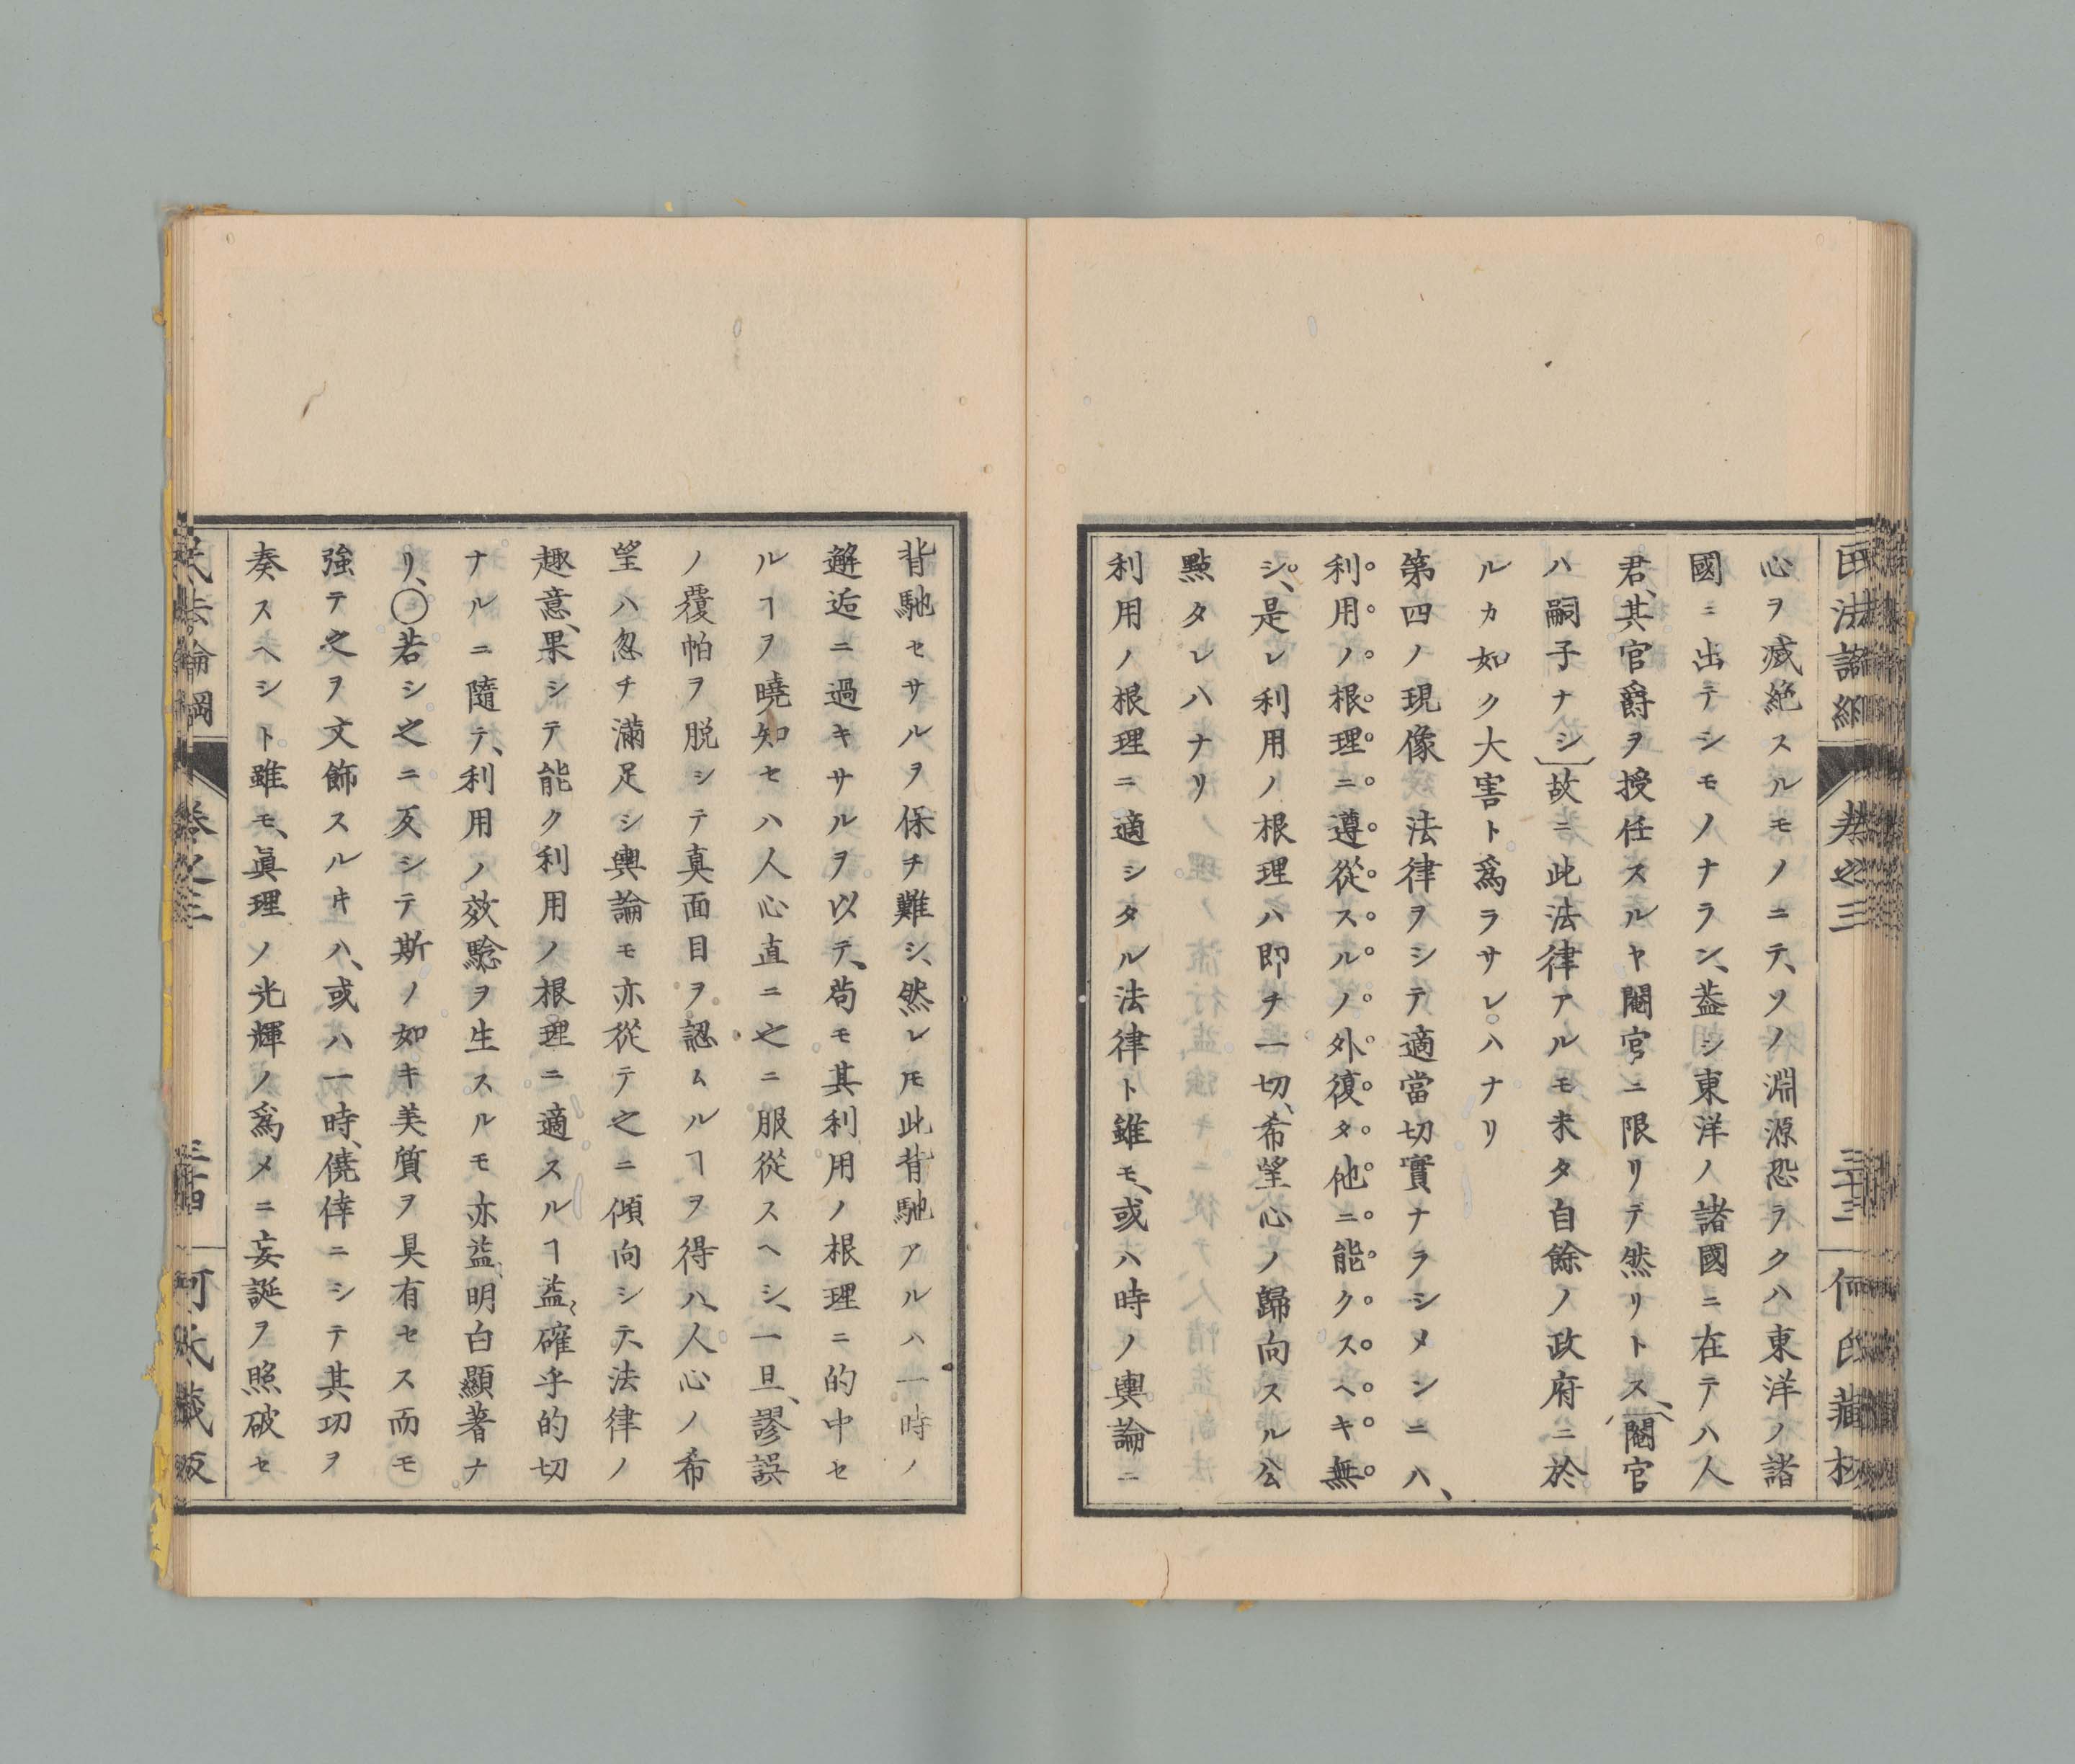 民法論綱 卷之三 三十三 何氏藏板
心ヲ滅絶スルモノニテ、ソノ淵源恐ラクハ東洋ノ諸
國ニ出テシモノナラン、蓋シ東洋ノ諸國ニ在テハ人
君、其官爵ヲ授任スルヤ閹官ニ限リテ然リトス、〔閹官
ハ嗣子ナシ〕故ニ此法律アルモ未タ自餘ノ政府ニ於
ルカ如ク大害ト爲ラサレハナリ
第四ノ現像 法律ヲシテ適當切實ナラシメンニハ、
利用ノ根理ニ遵從スルノ外復タ他ニ能クスヘキ無
シ、是レ利用ノ根理ハ即チ一切、希望心ノ歸向スル公
點タレハナリ
利用ノ根理ニ適シタル法律ト雖モ、或ハ時ノ輿論ニ
背馳セサルヲ保チ難シ、然レ𪜈此背馳アルハ一時ノ
邂逅ニ過キサルヲ以テ、苟モ其利用ノ根理ニ的中セ
ルヿヲ曉知セハ人心直ニ之ニ服從スヘシ、一旦、謬誤
ノ覆帕ヲ脱シテ真面目ヲ認ムルヿヲ得ハ、人心ノ希
望ハ忽チ滿足シ輿論モ亦從テ之ニ傾向シテ、法律ノ
趣意、果シテ能ク利用ノ根理ニ適スルヿ益〻確乎的切
ナルニ隨テ、利用ノ效騐ヲ生スルモ亦益〻明白顯著ナ
リ、◯若シ之ニ反シテ斯ノ如キ美質ヲ具有セス而モ
強テ之ヲ文飾スルㇳキハ、或ハ一時、僥倖ニシテ其功ヲ
奏スヘシト雖モ、眞理ノ光輝ノ爲メニ妄誕ヲ照破セ
民法論綱 卷之三 何氏藏板